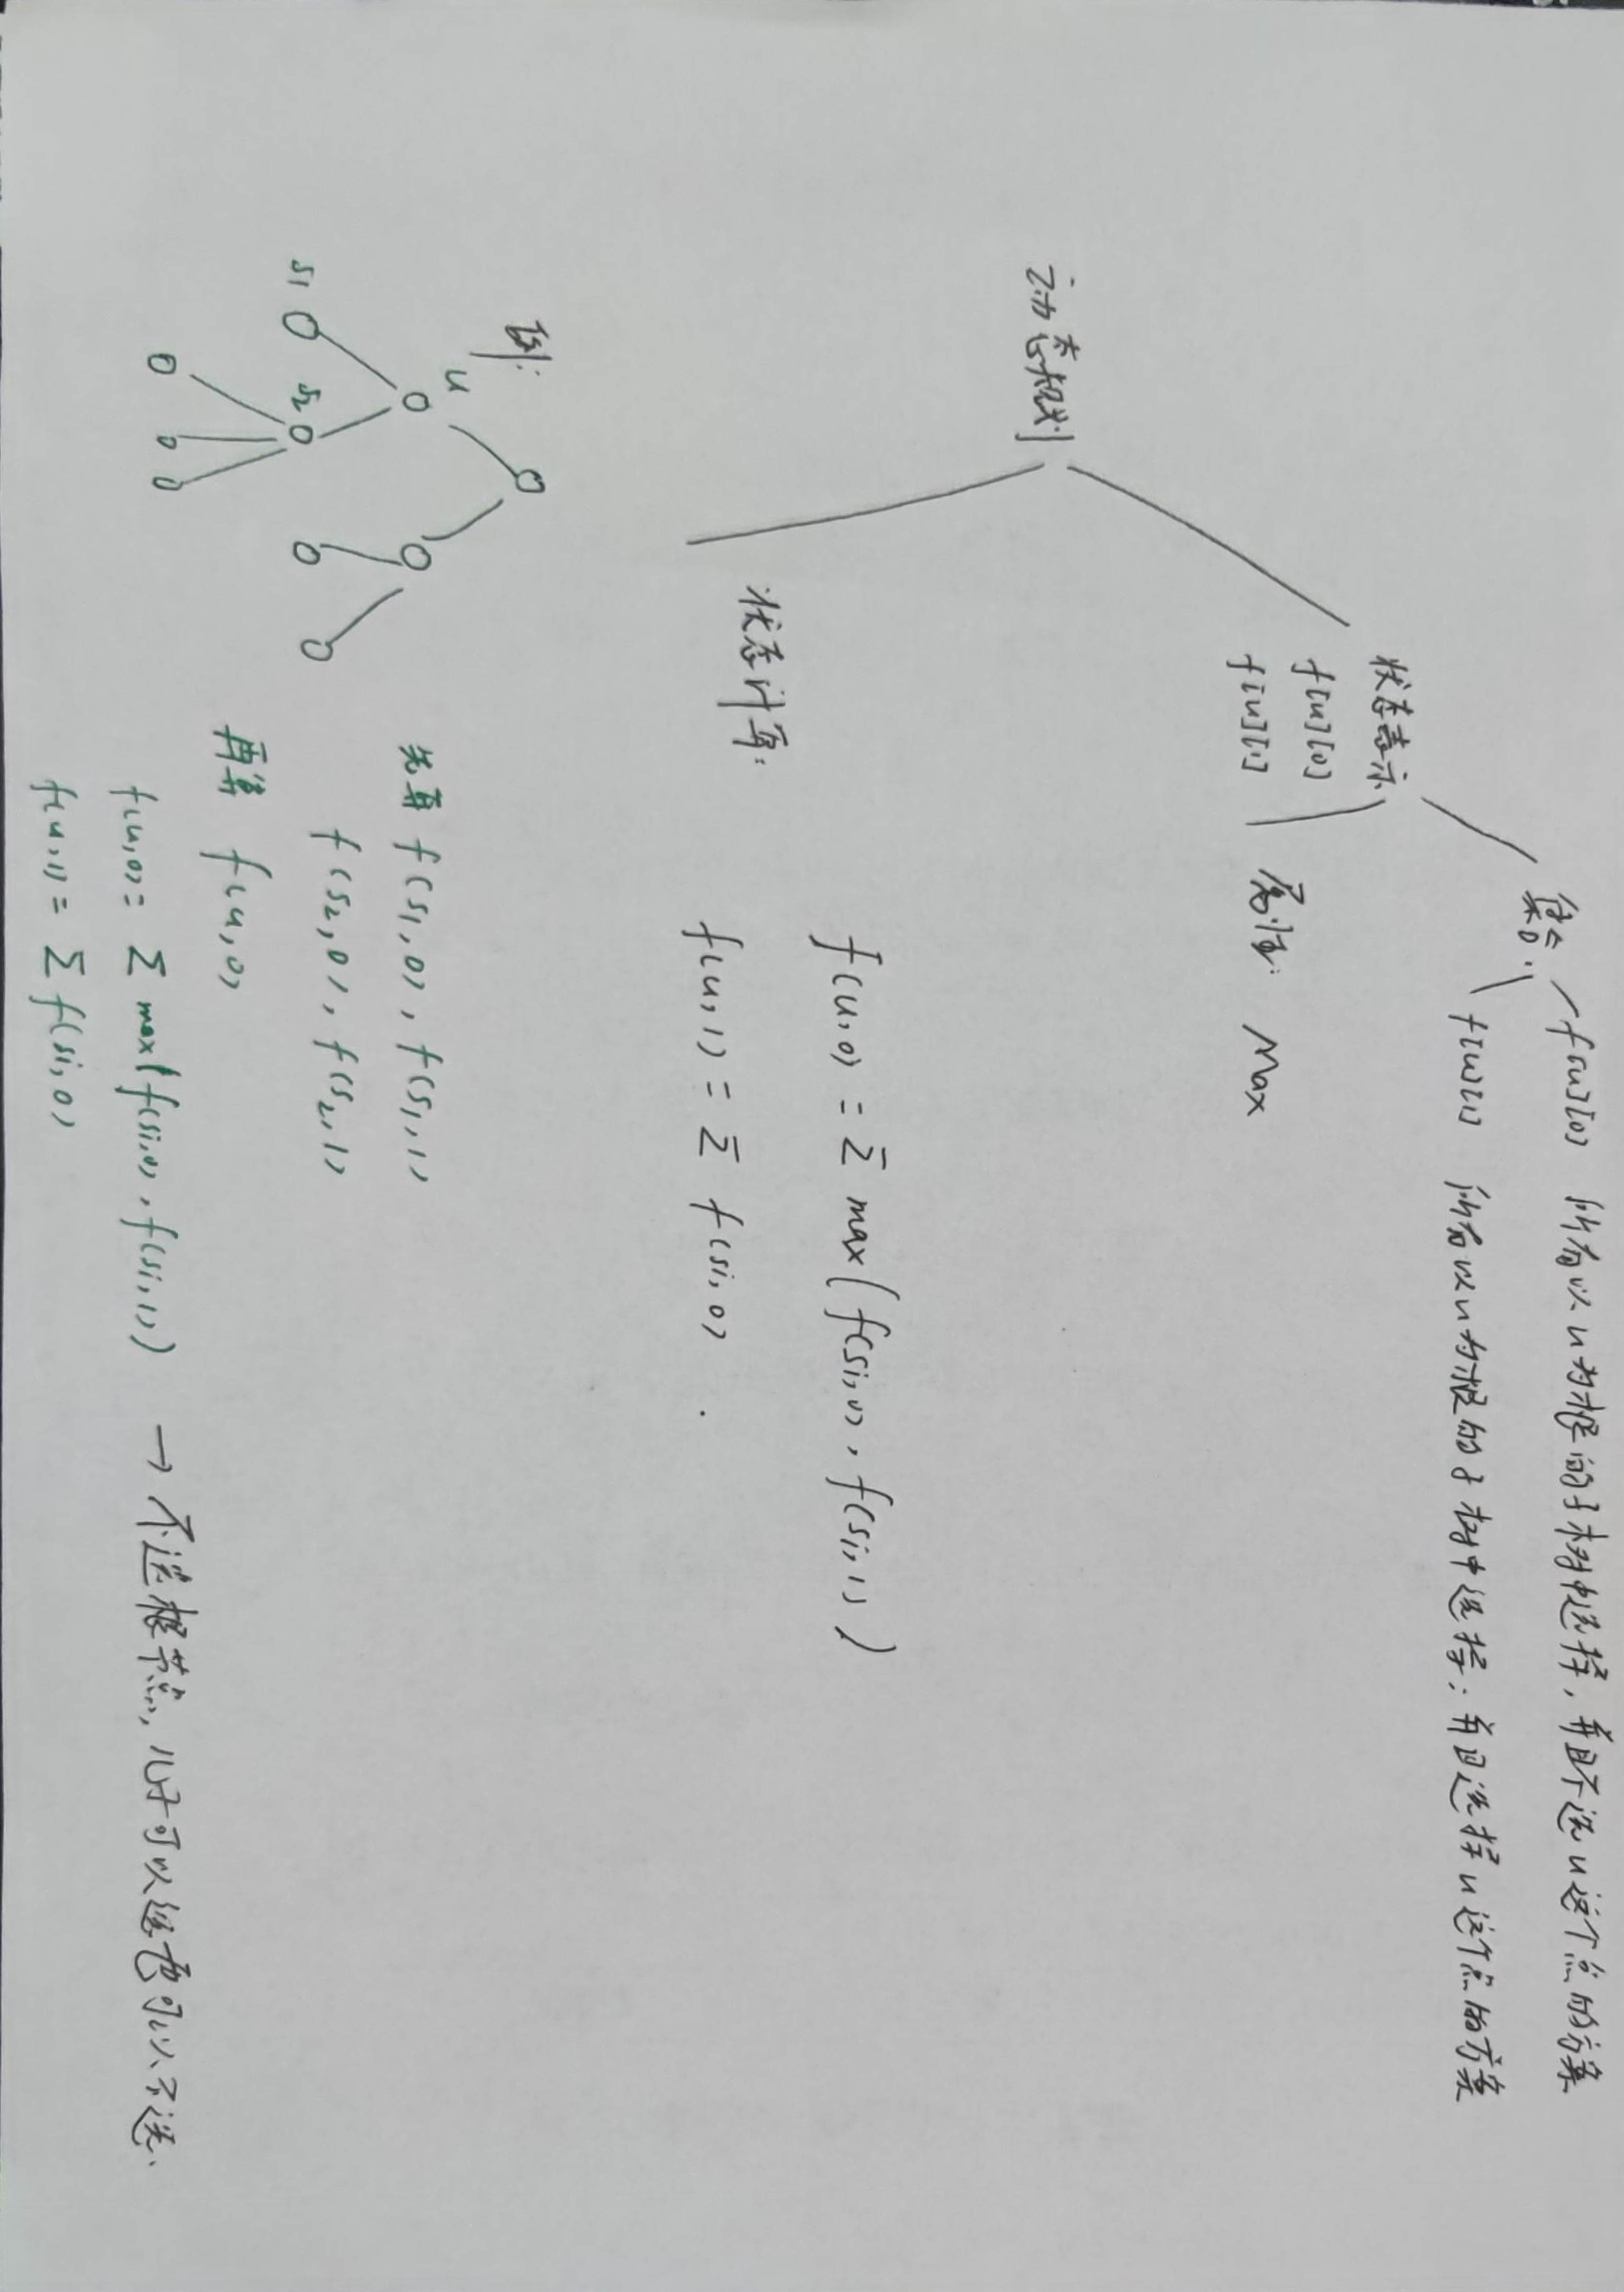 集合: f[u][0] 所有以u为根的子树中选择,并且不选u这个点的方案
f[u][1] 所有以u为根的子树中选择;并且选择u这个点的方案
状态表示
f[u][0]
f[u][1]
属性: Max
动态规划
状态计算:
f(u,0) = Σ max(f(si,0), f(si,1))
f(u,1) = Σ f(si,0).
例:
u
s1
s2
先算 f(s1,0), f(s1,1)
f(s2,0), f(s2,1)
再算 f(u,0)
f(u,0) = Σ max(f(si,0), f(si,1)) → 不选根节点, 儿子可以选也可以不选.
f(u,1) = Σ f(si,0)